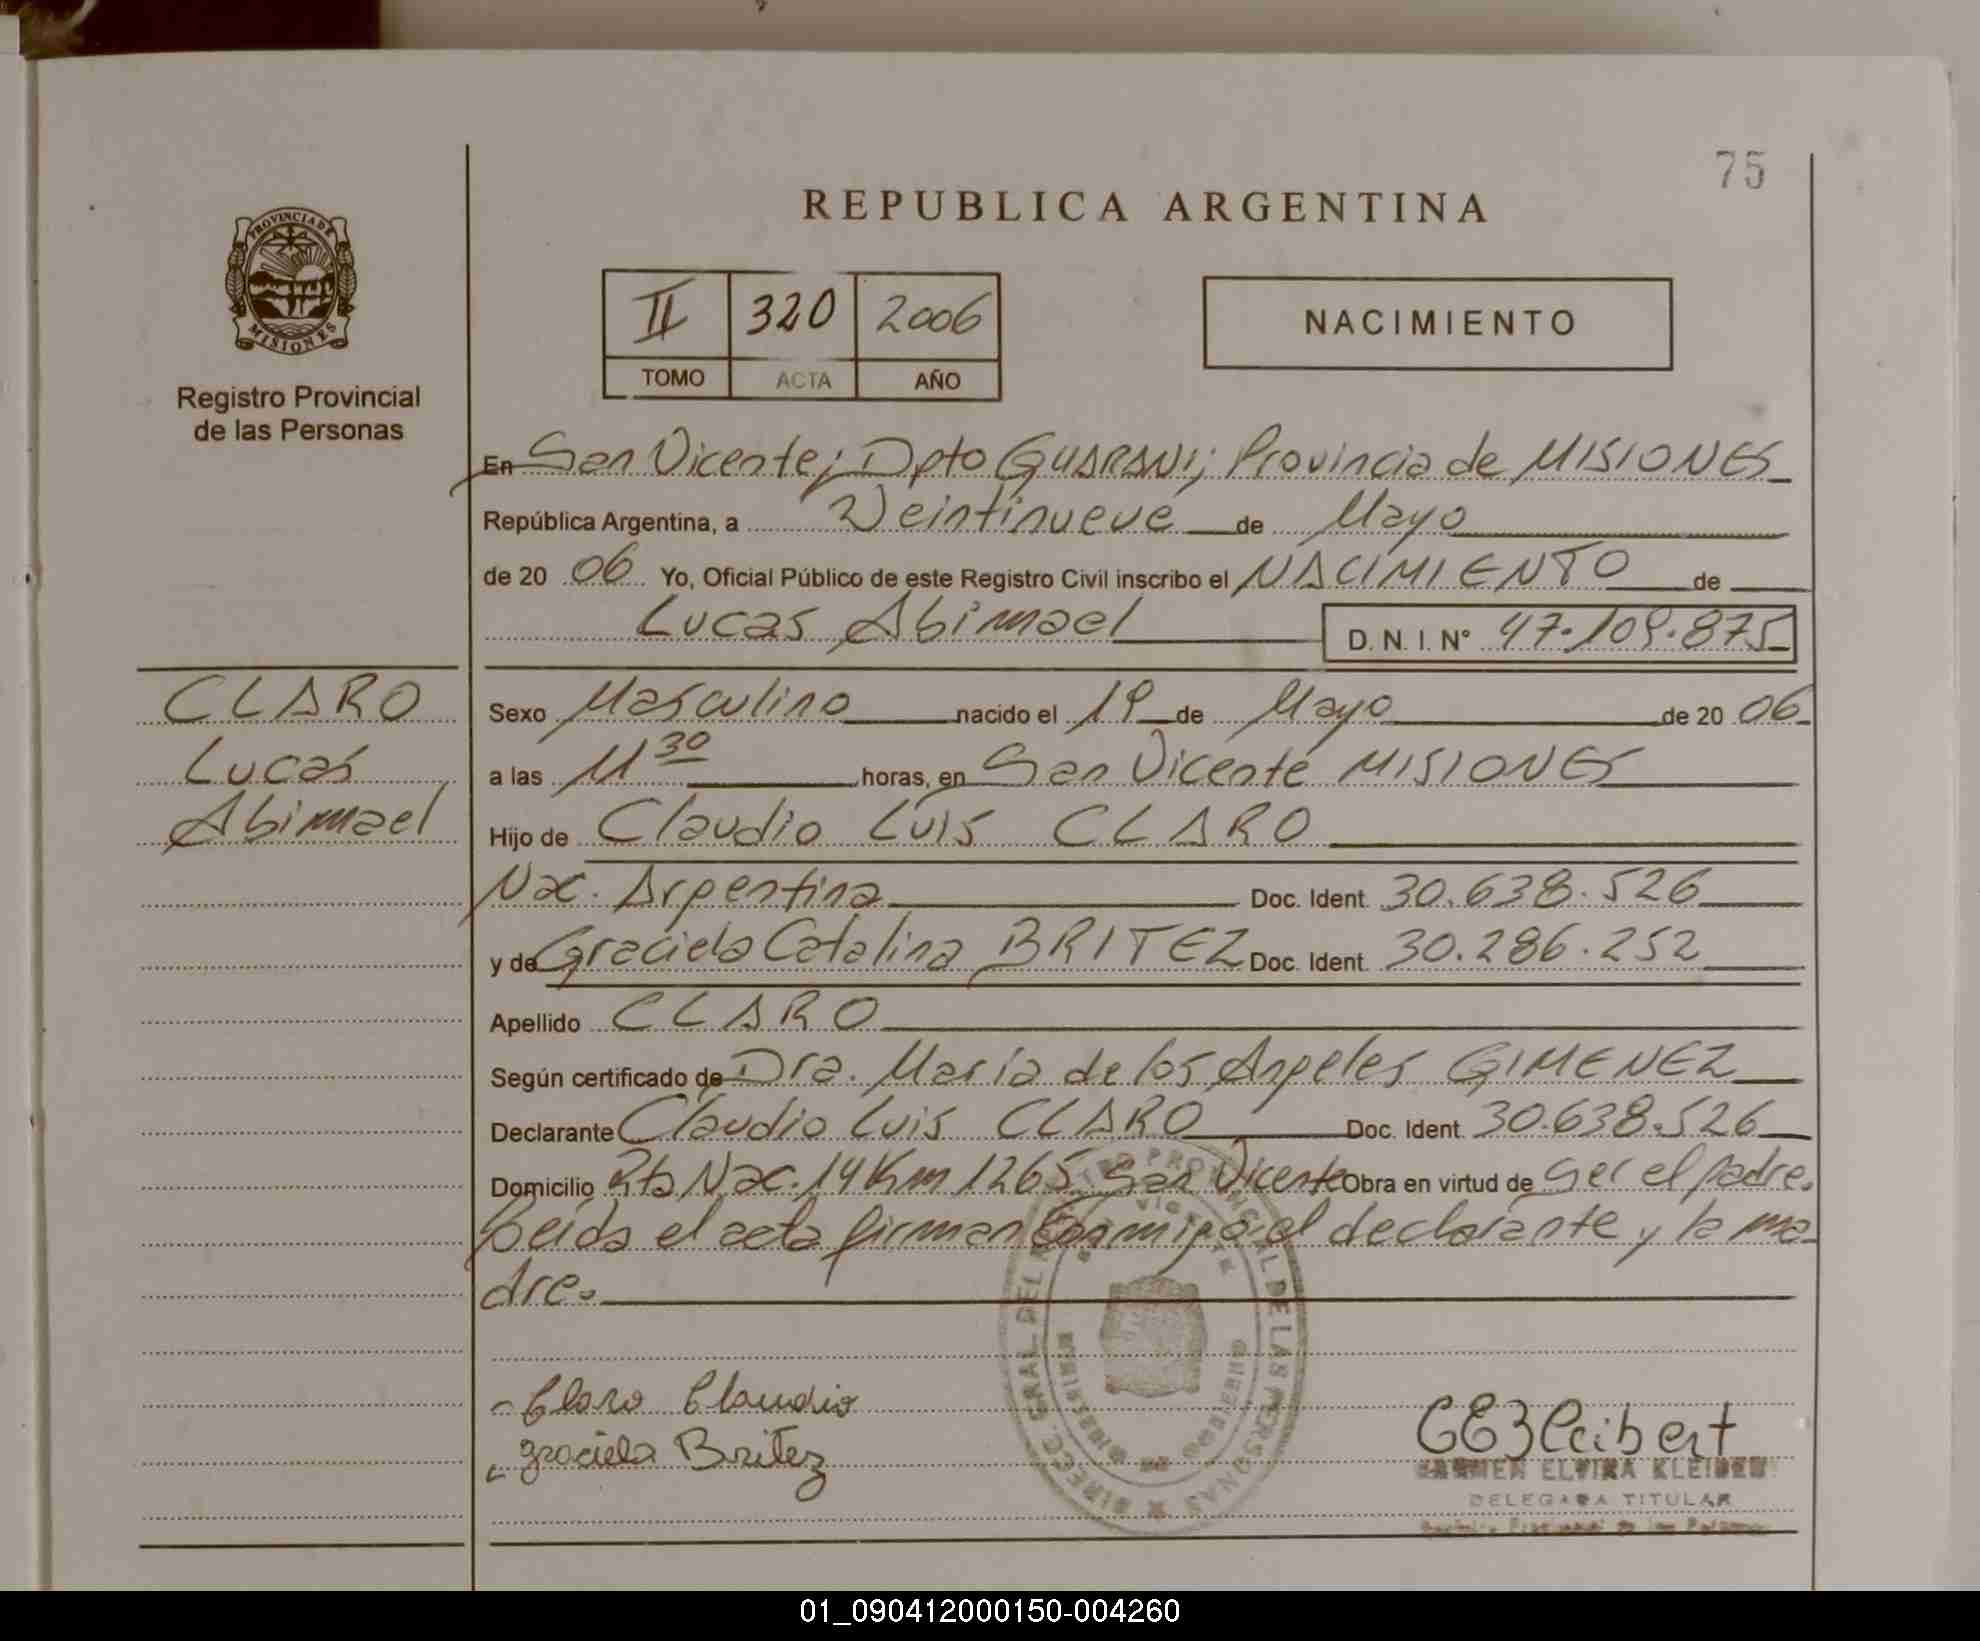 75
REPUBLICA ARGENTINA
PROVINCIA DE
MISIONES
Registro Provincial
de las Personas
II 320 2006
TOMO ACTA AÑO
NACIMIENTO
En San Vicente; Dpto GUARANI; Provincia de MISIONES
República Argentina, a Veintinueve de Mayo
de 20 06 Yo, Oficial Público de este Registro Civil inscribo el NACIMIENTO de
Lucas Abimael D. N. I. N° 47.109.875
CLARO
Lucas
Abimael
Sexo Masculino nacido el 19 de Mayo de 20 06
a las 11 30 horas, en San Vicente MISIONES
Hijo de Claudio Luis CLARO
Nac. Argentina Doc. Ident. 30.638.526
y de Graciela Catalina BRITEZ Doc. Ident. 30.286.252
Apellido CLARO
Según certificado de Dra. María de los Angeles GIMENEZ
Declarante Claudio Luis CLARO Doc. Ident. 30.638.526
Domicilio Rta Nac. 14 Km 1265 San Vicente Obra en virtud de ser el padre.
Leída el acta firman conmigo el declarante y la ma-
dre.
Claro Claudio
Graciela Britez
DIREC. GRAL. DEL REGISTRO PROVINCIAL DE LAS PERSONAS
MINISTERIO DE GOBIERNO
CEKleibert
CARMEN ELVIRA KLEIBERT
DELEGADA TITULAR
Registro Provincial de las Personas
01_090412000150-004260